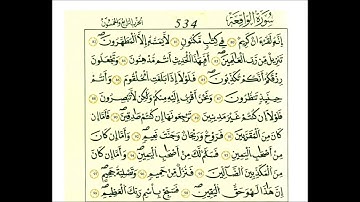 سُورَةُ الْوَاقِعَةِ 534 الجزء السابع والعشرون
إِنَّهُۥ لَقُرْءَانٌ كَرِيمٌ فِى كِتَـٰبٍ مَّكْنُونٍ لَّا يَمَسُّهُۥٓ إِلَّا ٱلْمُطَهَّرُونَ
تَنزِيلٌ مِّن رَّبِّ ٱلْعَـٰلَمِينَ أَفَبِهَـٰذَا ٱلْحَدِيثِ أَنتُم مُّدْهِنُونَ وَتَجْعَلُونَ
رِزْقَكُمْ أَنَّكُمْ تُكَذِّبُونَ فَلَوْلَآ إِذَا بَلَغَتِ ٱلْحُلْقُومَ وَأَنتُمْ
حِينَئِذٍ تَنظُرُونَ وَنَحْنُ أَقْرَبُ إِلَيْهِ مِنكُمْ وَلَـٰكِن لَّا تُبْصِرُونَ
فَلَوْلَآ إِن كُنتُمْ غَيْرَ مَدِينِينَ تَرْجِعُونَهَآ إِن كُنتُمْ صَـٰدِقِينَ فَأَمَّآ إِن
كَانَ مِنَ ٱلْمُقَرَّبِينَ فَرَوْحٌ وَرَيْحَانٌ وَجَنَّتُ نَعِيمٍ وَأَمَّآ إِن كَانَ
مِنْ أَصْحَـٰبِ ٱلْيَمِينِ فَسَلَـٰمٌ لَّكَ مِنْ أَصْحَـٰبِ ٱلْيَمِينِ وَأَمَّآ إِن كَانَ
مِنَ ٱلْمُكَذِّبِينَ ٱلضَّآلِّينَ فَنُزُلٌ مِّنْ حَمِيمٍ وَتَصْلِيَةُ جَحِيمٍ
إِنَّ هَـٰذَا لَهُوَ حَقُّ ٱلْيَقِينِ فَسَبِّحْ بِٱسْمِ رَبِّكَ ٱلْعَظِيمِ